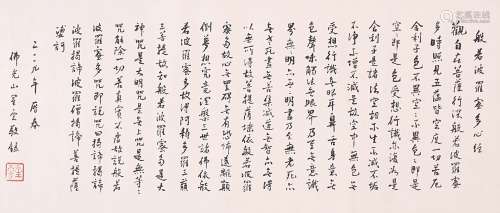 般若波羅蜜多心經
觀自在菩薩行深般若波羅蜜
多時照見五蘊皆空度一切苦厄
舍利子色不異空空不異色色即是
空空即是色受想行識亦復如是
舍利子是諸法空相不生不滅不垢
不淨不增不減是故空中無色無
受想行識無眼耳鼻舌身意無
色聲味觸法無眼界乃至無意識
界無明亦無無明盡乃至無老死亦
無老死盡無苦集滅道無智亦無得
以無所得故菩提薩埵依般若波羅
蜜多故心無罣礙無有恐怖遠離顛
倒夢想究竟涅槃三世諸佛依般
若波羅蜜多故得阿耨多羅三藐
三菩提故知般若波羅蜜多是大
神咒是大明咒是無上咒是無等等
咒能除一切苦真實不虛故說般若
波羅蜜多咒即說咒曰揭諦揭諦
波羅揭諦波羅僧揭諦菩提薩
婆訶
二〇〇九年 春
佛光山星雲敬錄